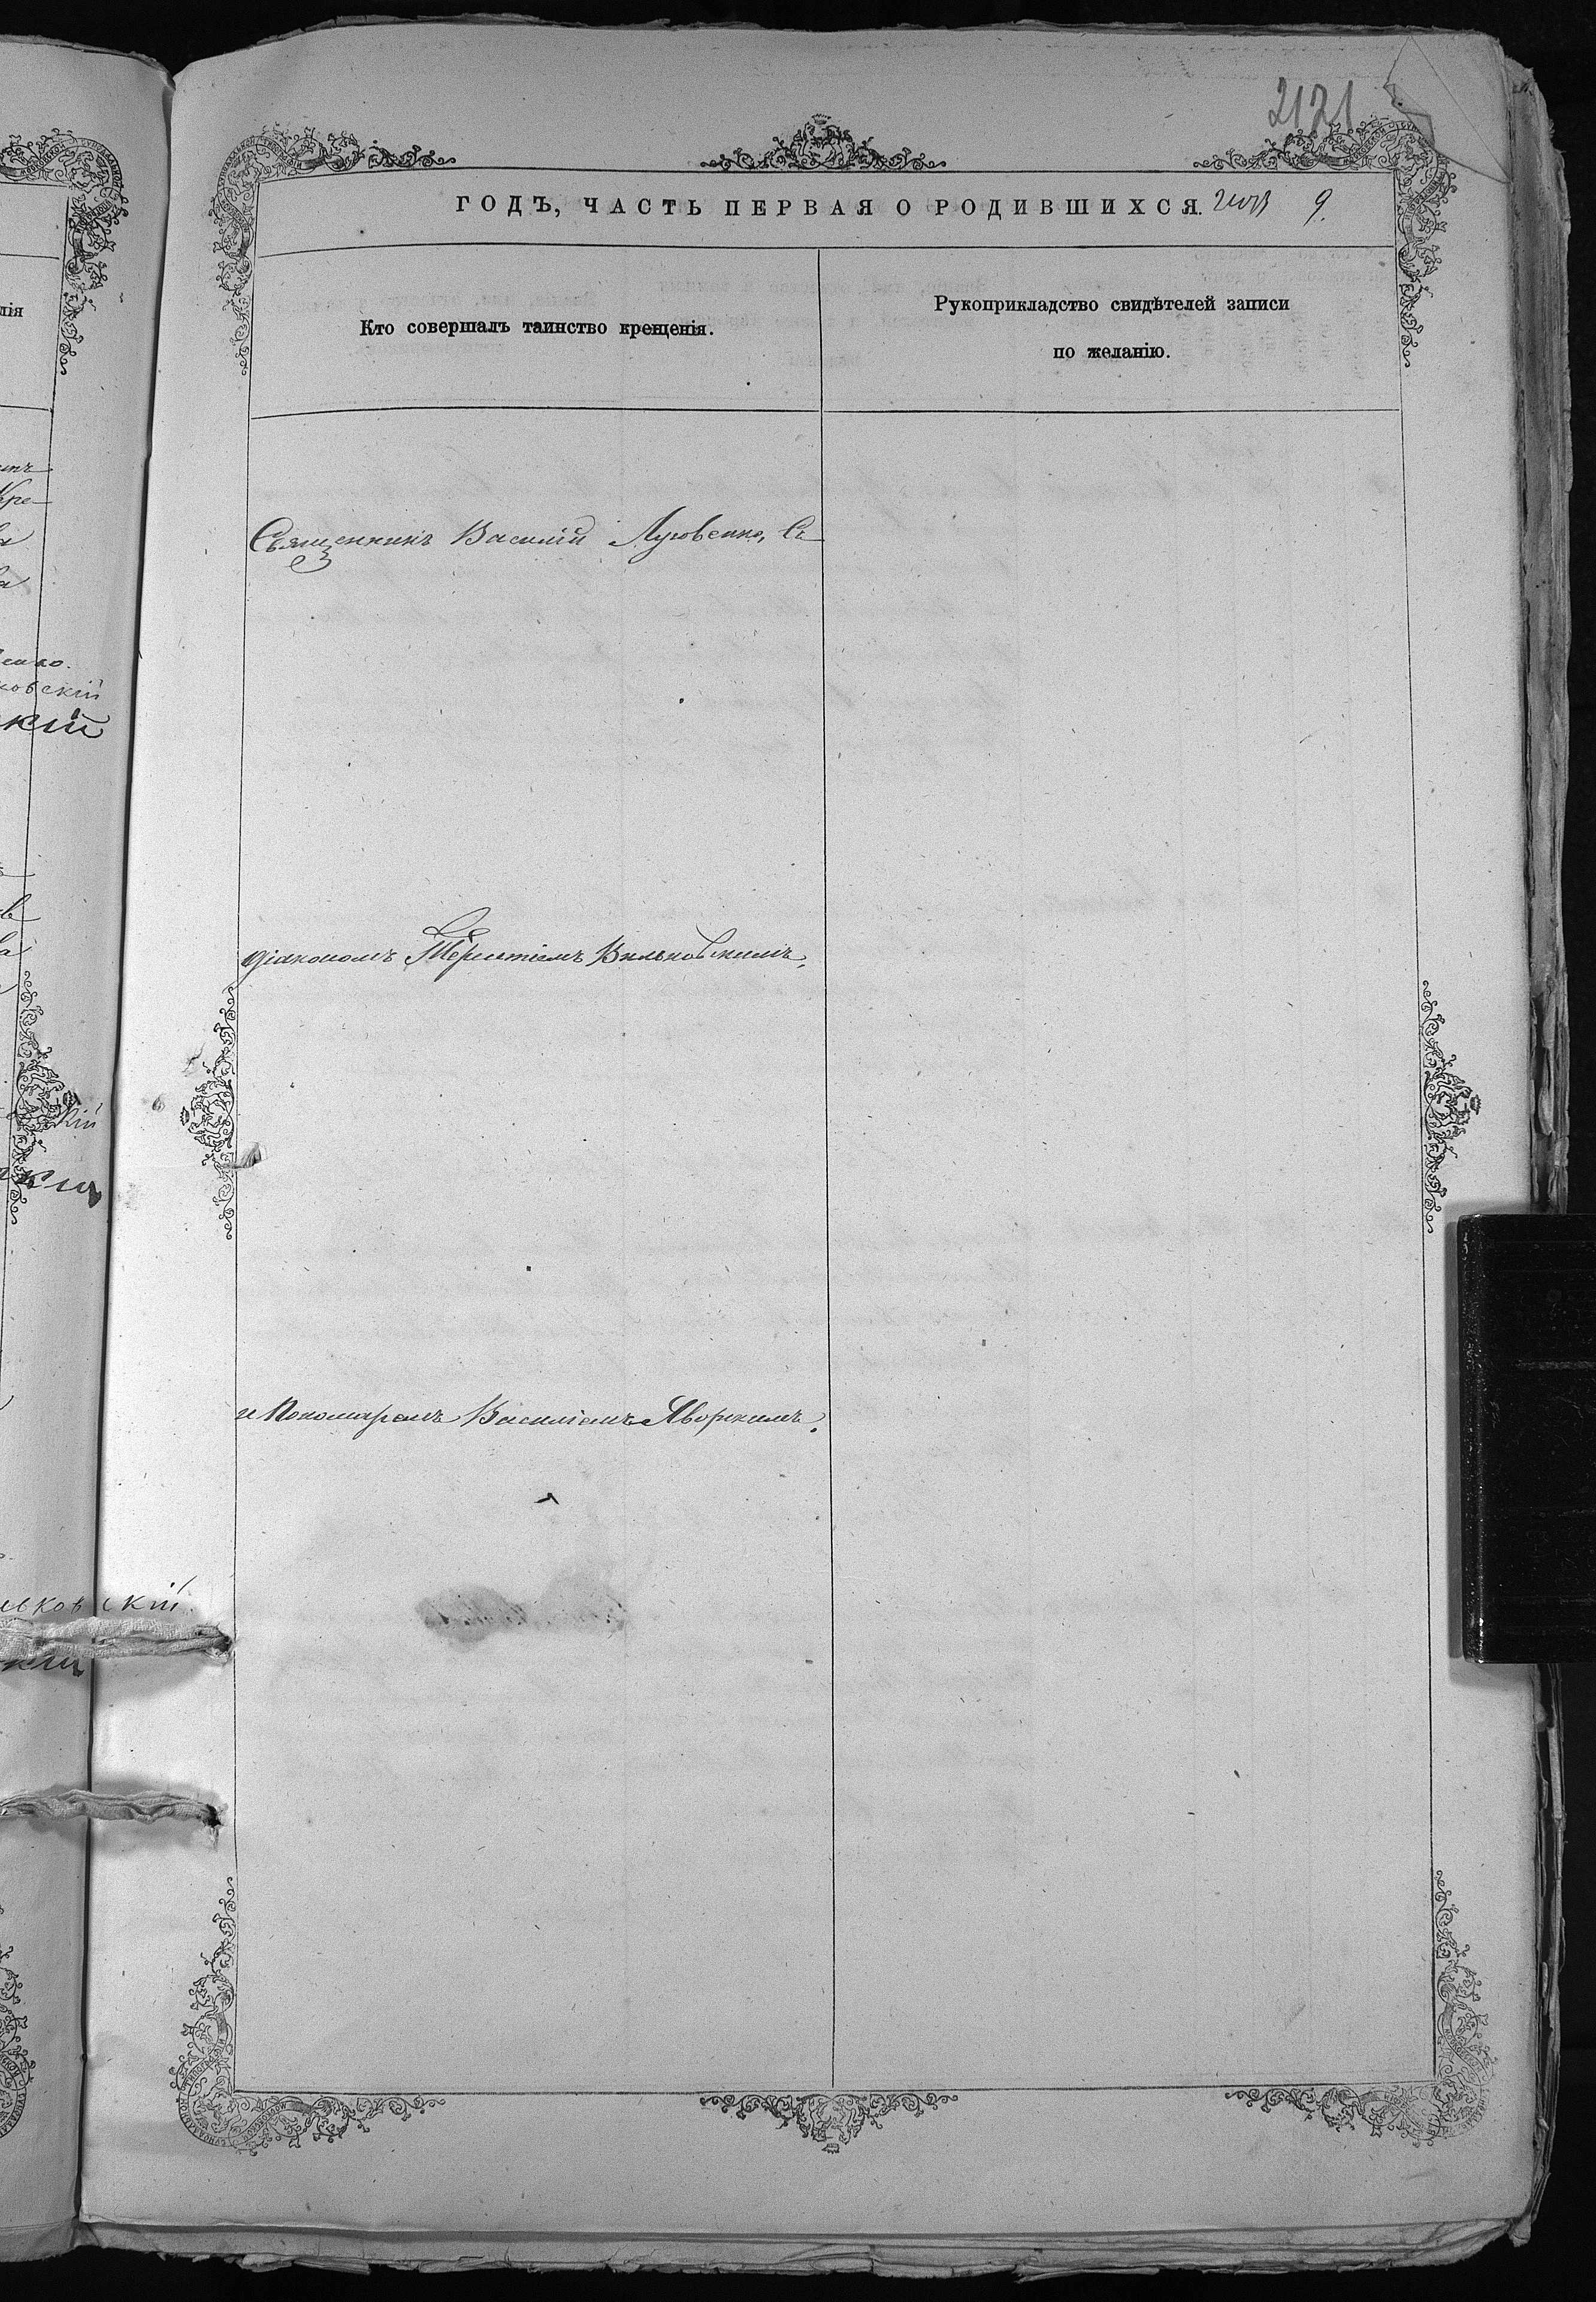 2121
ГОДЪ, ЧАСТЬ ПЕРВАЯ О РОДИВШИХСЯ. 9.
лія
Кто совершалъ таинство крещенія.
Рукоприкладство свидѣтелей записи
по желанію.
Кре-
Священникъ Василій Луговенко, Съ
енко.
ковскій
кій
діакономъ Терентіемъ Вильковскимъ,
кій
и Пономаремъ Василіемъ Яворскимъ.
льковскій
кій